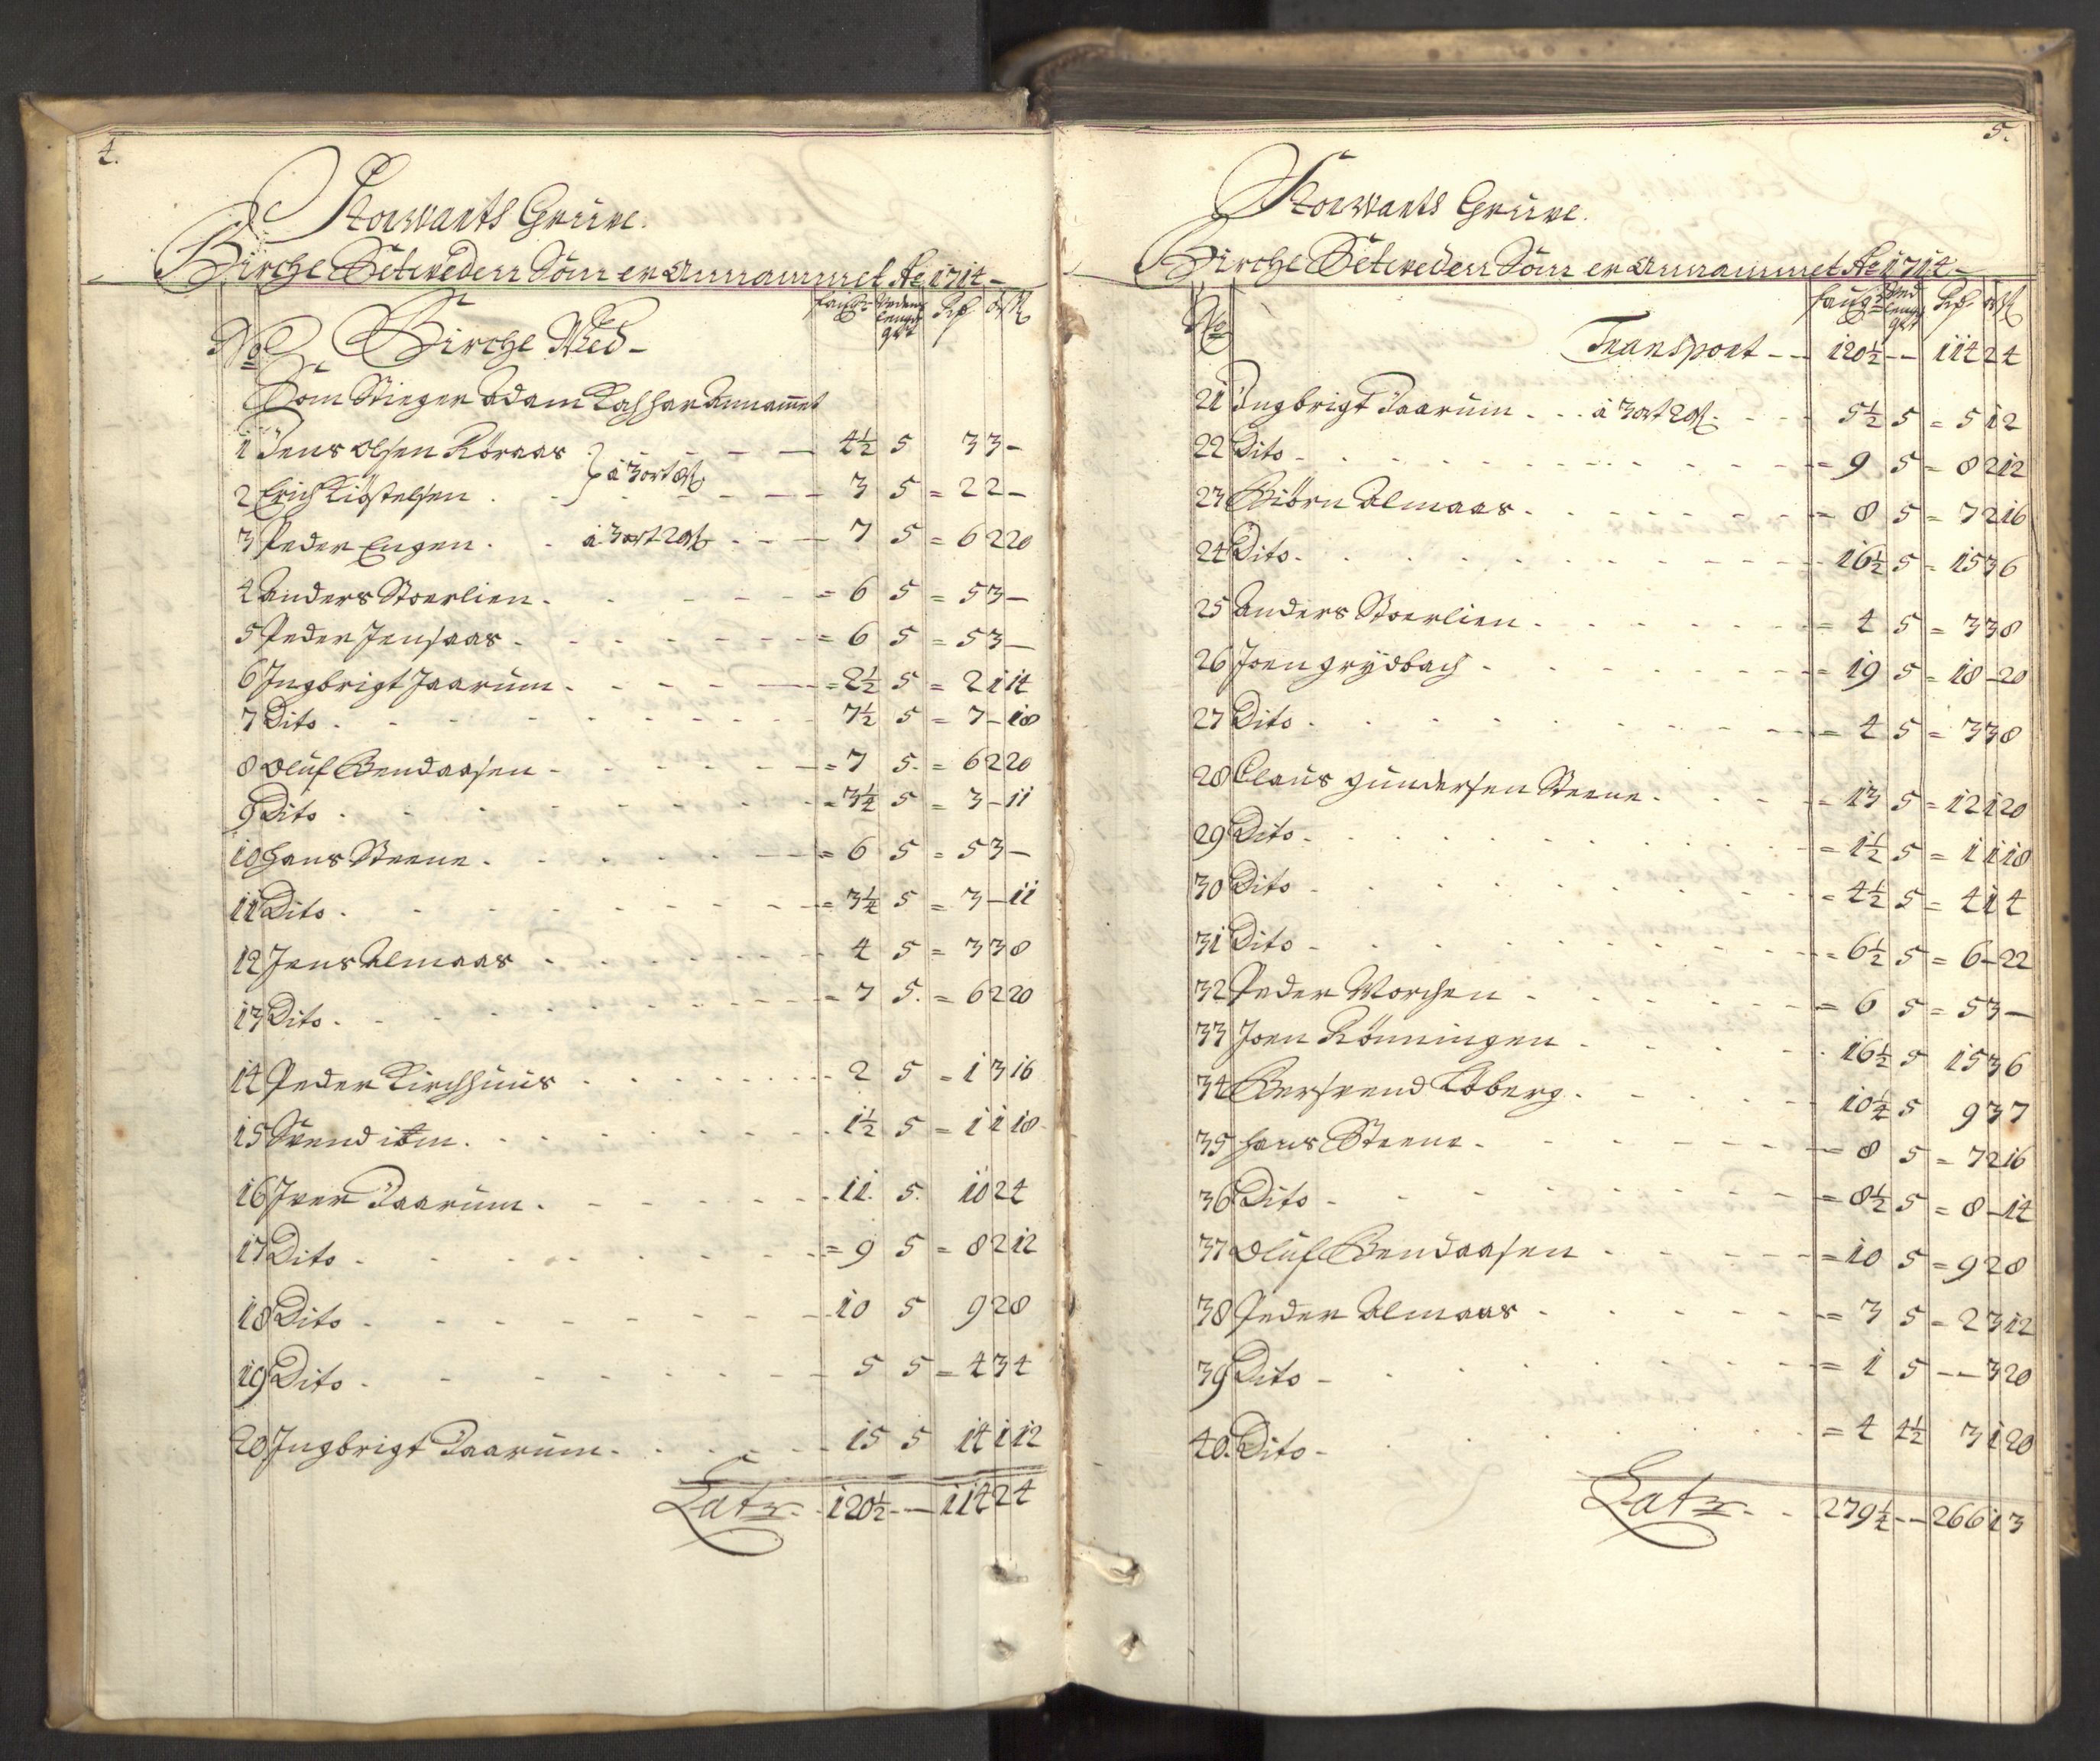 4.
Storwarts Grüve.
Birche Seteveden Som er Annammet Ao 1714 -
No Birche Wed - faufn Vedens lengd qrt Rd ort s
Som Stieger Adam Rasch har Annammet
1 Jens Olsen Röraas - - - 4½ 5 3 3 -
à 3 ort 8 s
2 Erich Kiöstelsen . - - - 3 5 = 2 2 -
3 Peder Engen . . à 3 ort 20 s - - - 7 5 = 6 2 20
4 Anders Stoerlien . - - - = 6 5 = 5 3 -
5 Peder Jensaas . - - - = 6 5 = 5 3 -
6 Ingbrigt Jaarum . - - - = 2½ 5 = 2 1 14
7 Dito . - - - 7½ 5 = 7 - 18
8 Oluf Bendaasen - - - = 7 5. = 6 2 20
9 Dito . - - - = 3¼ 5 = 3 - 11
10 Hans Steene . - - - = 6 5 = 5 3 -
11 Dito . - - - = 3¼ 5 = 3 - 11
12 Jens Almaas . - - - 4 5 = 3 3 8
13 Dito . - - - = 7 5. = 6 2 20
14 Peder Kirchhuus . . . . 2 5 = 1 3 16
15 Svend ibm . . . . 1½ 5 = 1 1 18
16 Iver Jaarum . - - - 11. 5. 10 2 4
17 Dito . - - - = 9 5 = 8 2 12
18 Dito . - - - 10 5 9 2 8
19 Dito . - - - 5 5 = 4 3 4
20 Ingbrigt Jaarum . - - - 15 5 14 1 12
Latr - . 120½ - - 114 2 4
5.
Storwarts Grüve.
Birche Seteveden Som er Annammet Ao 1714 -
No faufn Ved lengd qrt Rd ort s
Transport - - 120½ - - 114 2 4
21 Ingbrigt Jaarum . . . à 3 ort 20 s . - - - 5½ 5 = 5 - 12
22 Dito - - - - = 9 5 = 8 2 12
23 Biörn Almaas . - - - = 8 5 = 7 2 16
24 Dito . - - - 16½ 5 = 15 3 6
25 Anders Stoerlien . - - - = 4 5 = 3 3 8
26 Joen Grydbach . - - - = 19 5 = 18 - 20
27 Dito . - - - = 4 5 = 3 3 8
28 Claus Gundersen Steene . - - - = 13 5 = 12 1 20
29 Dito - . . . = 1½ 5 = 1 1 18
30 Dito - . . . = 4½ 5 = 4 1 4
31 Dito - . . . = 6½ 5 = 6 - 22
32 Peder Worchen . - - - = 6 5 = 5 3 -
33 Joen Rönningen . . . 16½ 5 15 3 6
34 Bersvend Aaberg . - - - 10¼ 5 9 3 7
35 Hans Steene . - - - = 8 5 = 7 2 16
36 Dito - - - - = 8½ 5 = 8 - 14
37 Oluf Bendaasen . - - - = 10 5 = 9 2 8
38 Peder Almaas . - - - = 3 5 = 2 3 12
39 Dito - . . . = 1 5 - - 3 20
40. Dito - . . . = 4 4½ 3 1 20
Latr - - 279¼ - - 266 1 3